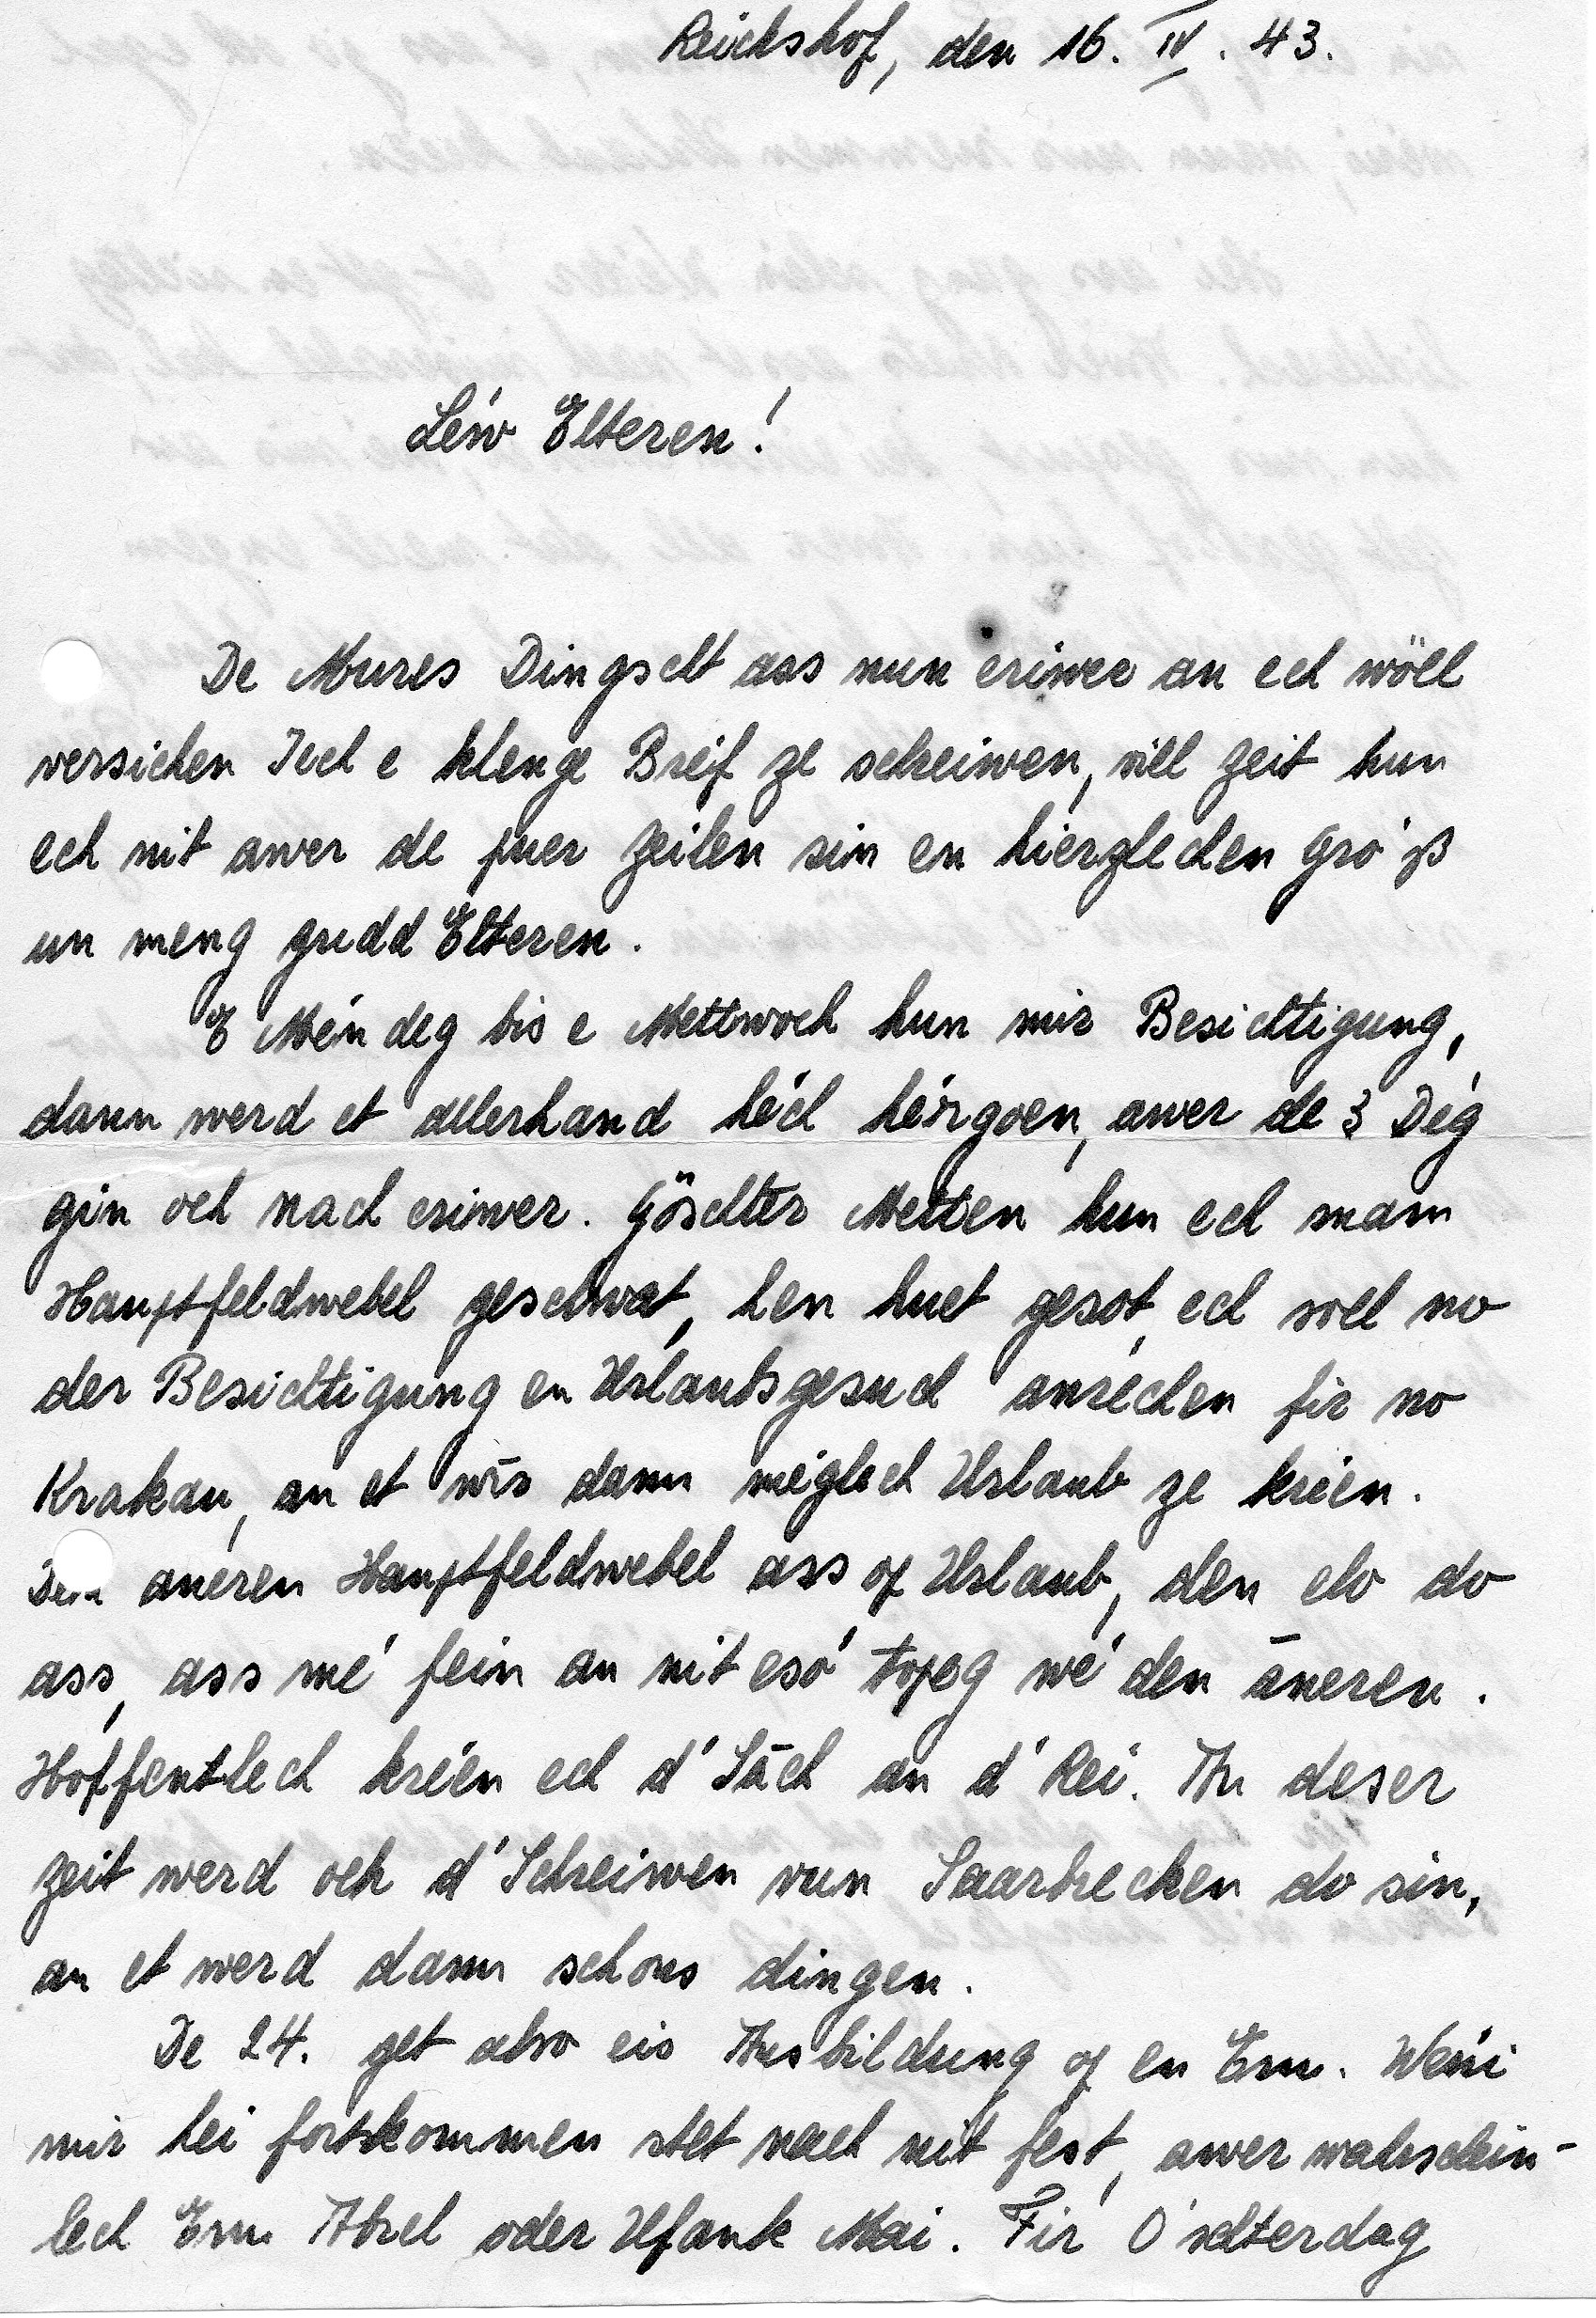 Reichshof, den 16. IV. 43.
Léiw Elteren!
De Mures Dingscht ass nun eriwer an ech wöll
versichen Iech e klenge Bréif ze schreiwen, vill Zeit hun
ech nit awer de puer Zeilen sin en hierzlechen Gró'ß
un meng gudd Elteren.
E Méindeg bis e Mettwoch hun mir Besichtigung,
dann werd et allerhand héich hérgoen, awer de 3 Dég
gin och nach eriwer. Göschter Metten hun ech mam
Hauptfeldwebel geschwat, hen huet gesot, ech soll no
der Besichtigung en Urlaubsgesuch anréchen fir no
Krakau, an et wir dann méiglech Urlaub ze kréien.
Den aneren Hauptfeldwebel ass op Urlaub, den elo do
ass, ass mé fein an nit esó topeg wé den āneren.
Hoffentlech kréien ech d'Sāch an d'Rei. An deser
Zeit werd och d'Schreiwen vun Saarbrecken do sin,
an et werd dann schons dingen.
De 24. get also eis Ausbildung op en Enn. Wéini
mir hei fortkommen stet nach nit fest, awer wahrschein-
lech Enn Abrel oder Ufank Mai. Fir O'schterdag